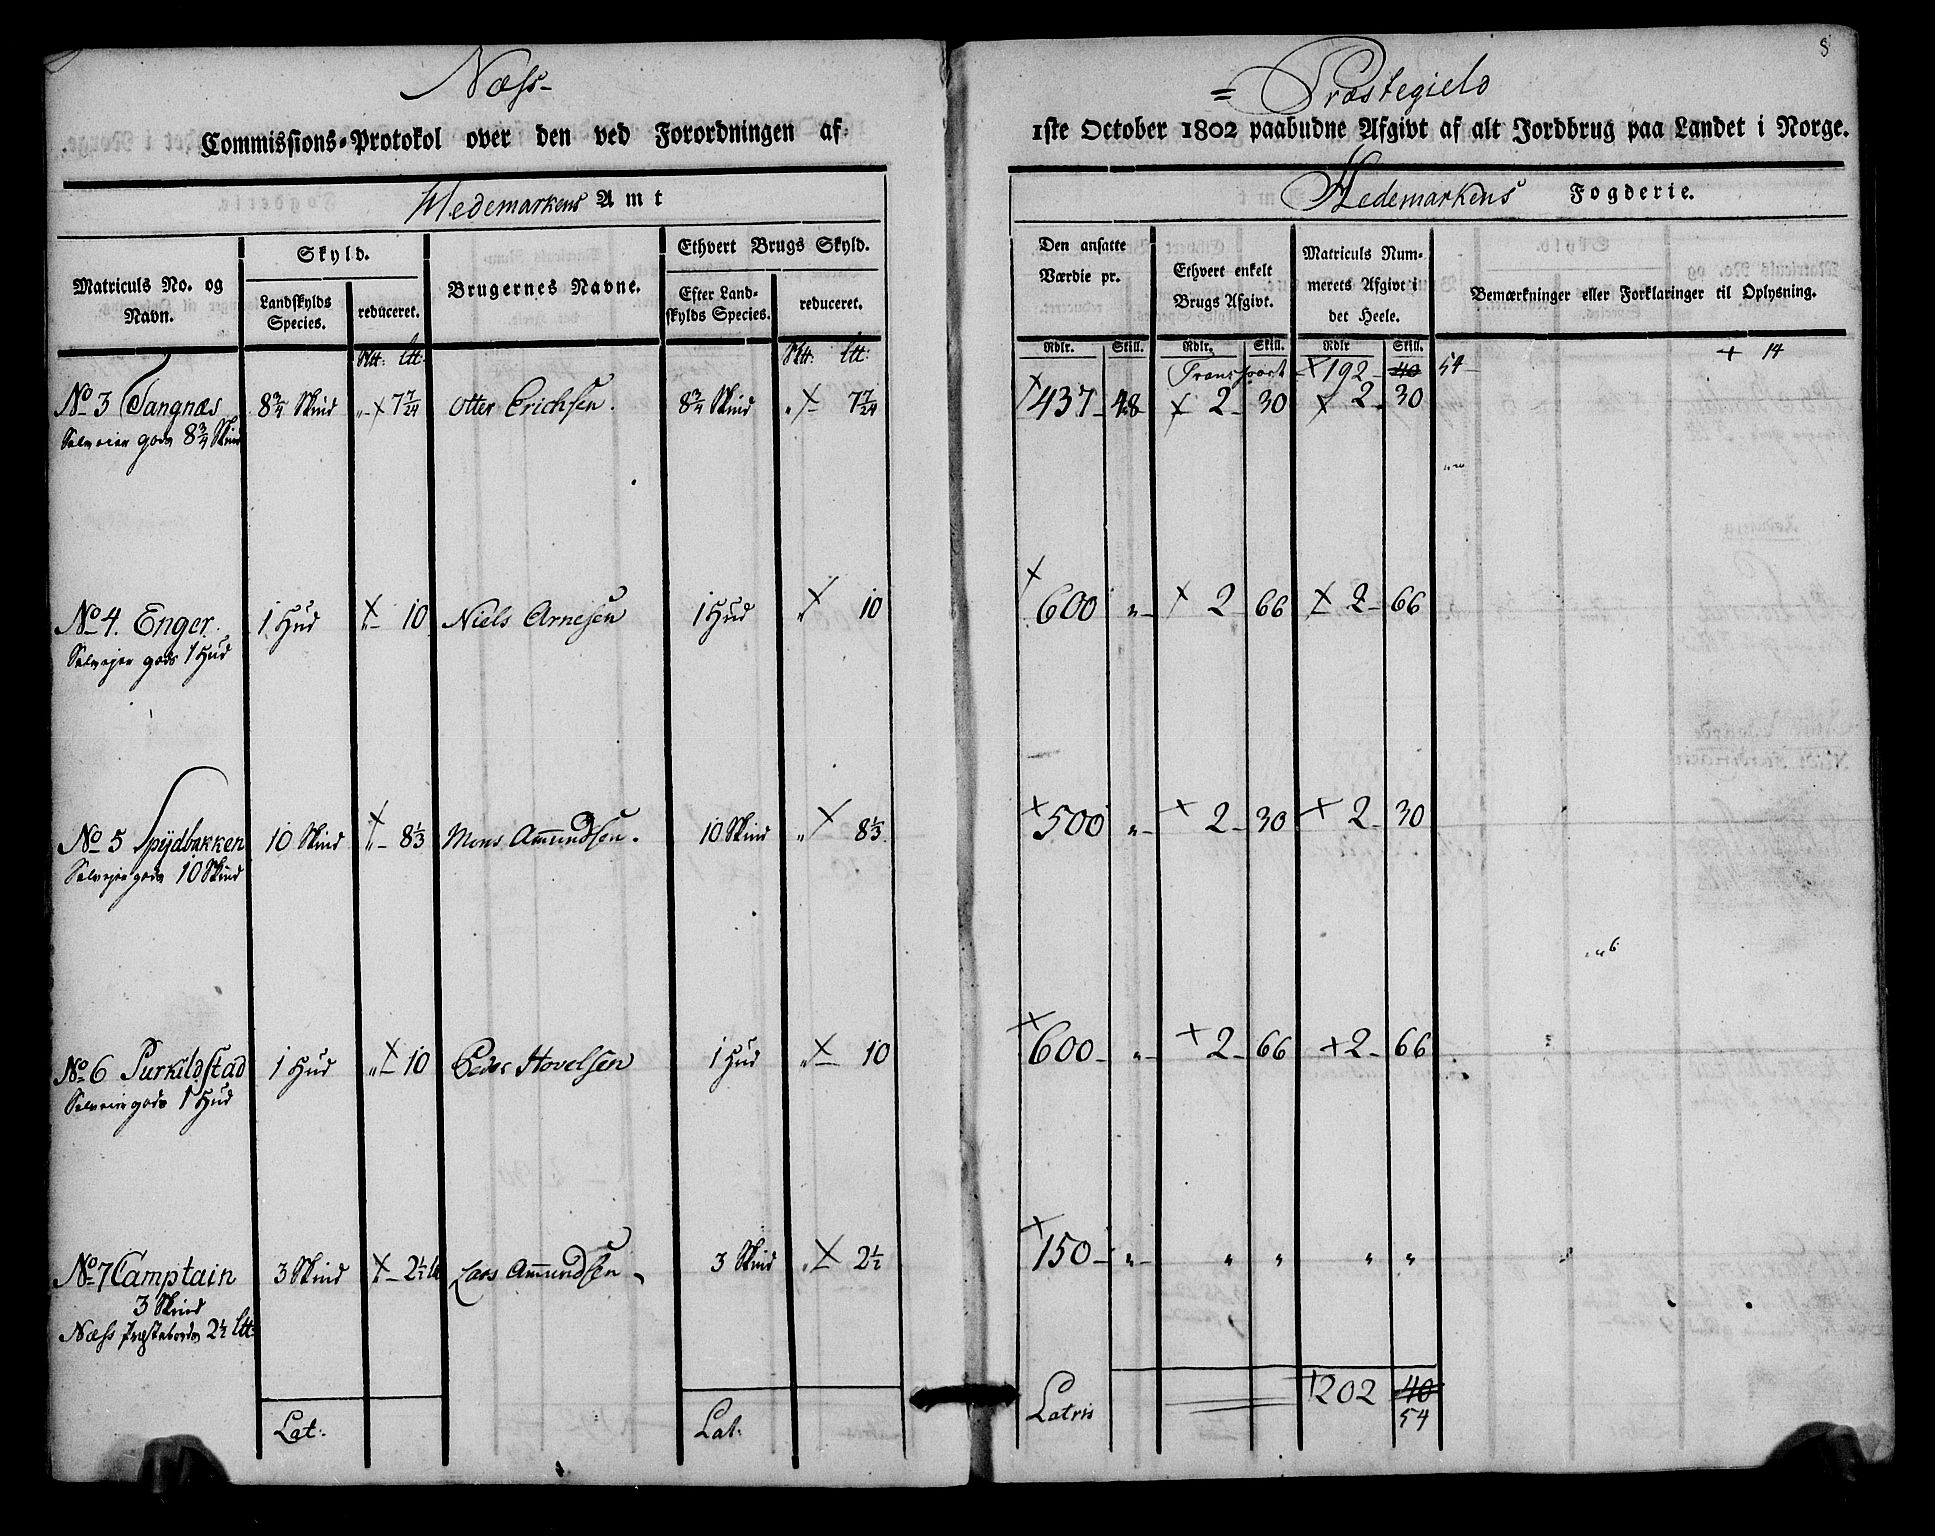 8
Næss- = Præstegield
Commissions-Protokol over den ved Forordningen af 1ste October 1802 paabudne Afgivt af alt Jordbrug paa Landet i Norge.
Hedemarkens Amt
Hedemarkens Fogderie.
Matriculs No. og Navn.
Skyld.
Landskylds Species.
reduceret.
Brugernes Navne.
Ethvert Brugs Skyld.
Efter Landskylds Species.
reduceret.
Den ansatte Værdie pr.
Ethvert enkelt Brugs Afgivt.
Matriculs Nummerets Afgivt i det Heele.
Bemærkninger eller Forklaringer til Oplysning.
Rdlr. Skill. Rdlr. Skill. Rdlr Skill.
Transport 192 - 40 54 + 14
No 3 Tangnæs 8 3/4 Skind 7 7/24 Otter Erichsen. 8 3/4 Skind 7 7/24 437 - 48 2 - 30 2 - 30
Selveier gods 8 3/4 Skind
No 4. Enger 1 Hud 10 Niels Arnesen 1 Hud 10 600 " - 2 66 2 - 66
Selvejer gods 1 Hud
No 5 Spydbakken 10 Skind 8 1/3 Mons Amundsen. 10 Skind 8 1/3 500 " - 2 - 30 2 - 30
Selvejer gods 10 Skind
No 6 Turkildstad 1 Hud 10 Peder Hovelsen 1 Hud 10 600 - " - 2 - 66 2 - 66
Selveier gods 1 Hud
No 7 Camptain 3 Skind 2 1/2 Lars Amundsen 3 Skind 2 1/2 150 - " - " " " "
3 Skind
Næss Præstebord 2 1/2 Ltt:
Lat: Lat: Latris 202 40
54